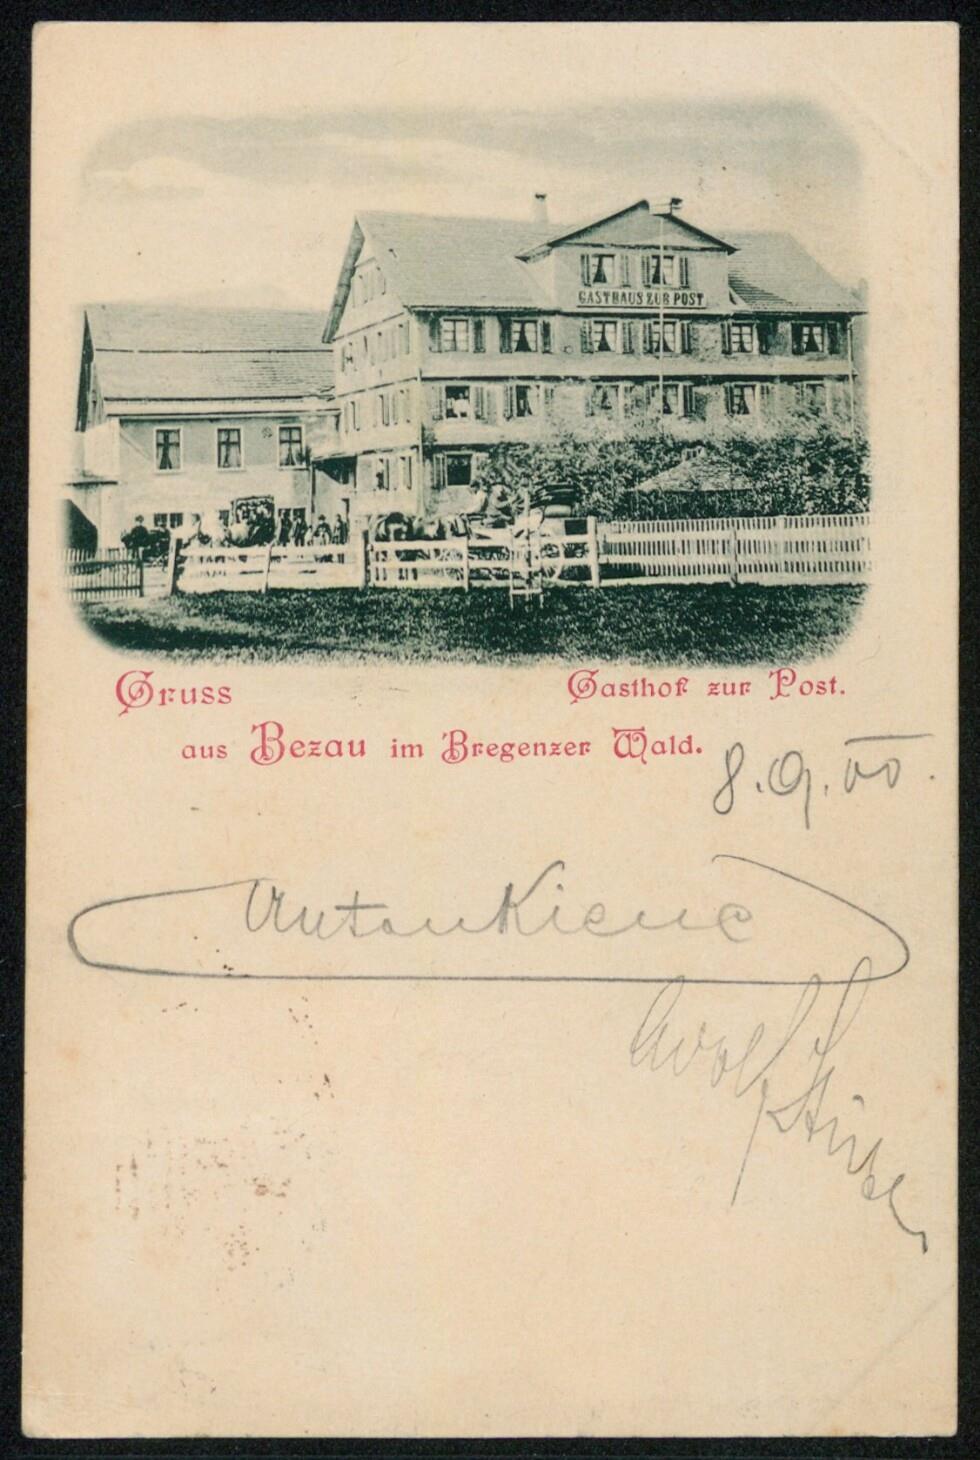 GASTHAUS ZUR POST
Gruss
Gasthof zur Post.
aus Bezau im Bregenzer Wald.
8.9.00.
Anton Kiene
Adolf